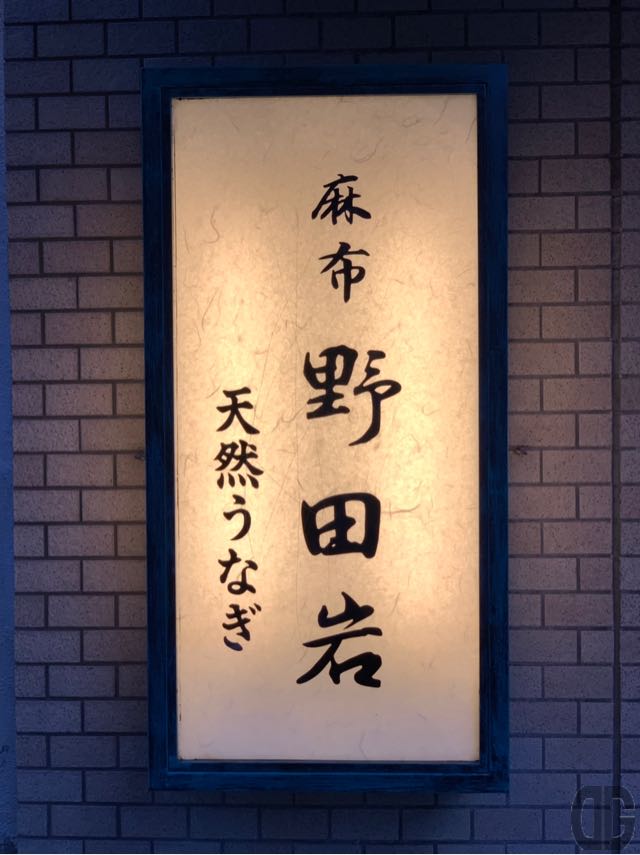 麻布 野田岩
天然うなぎ